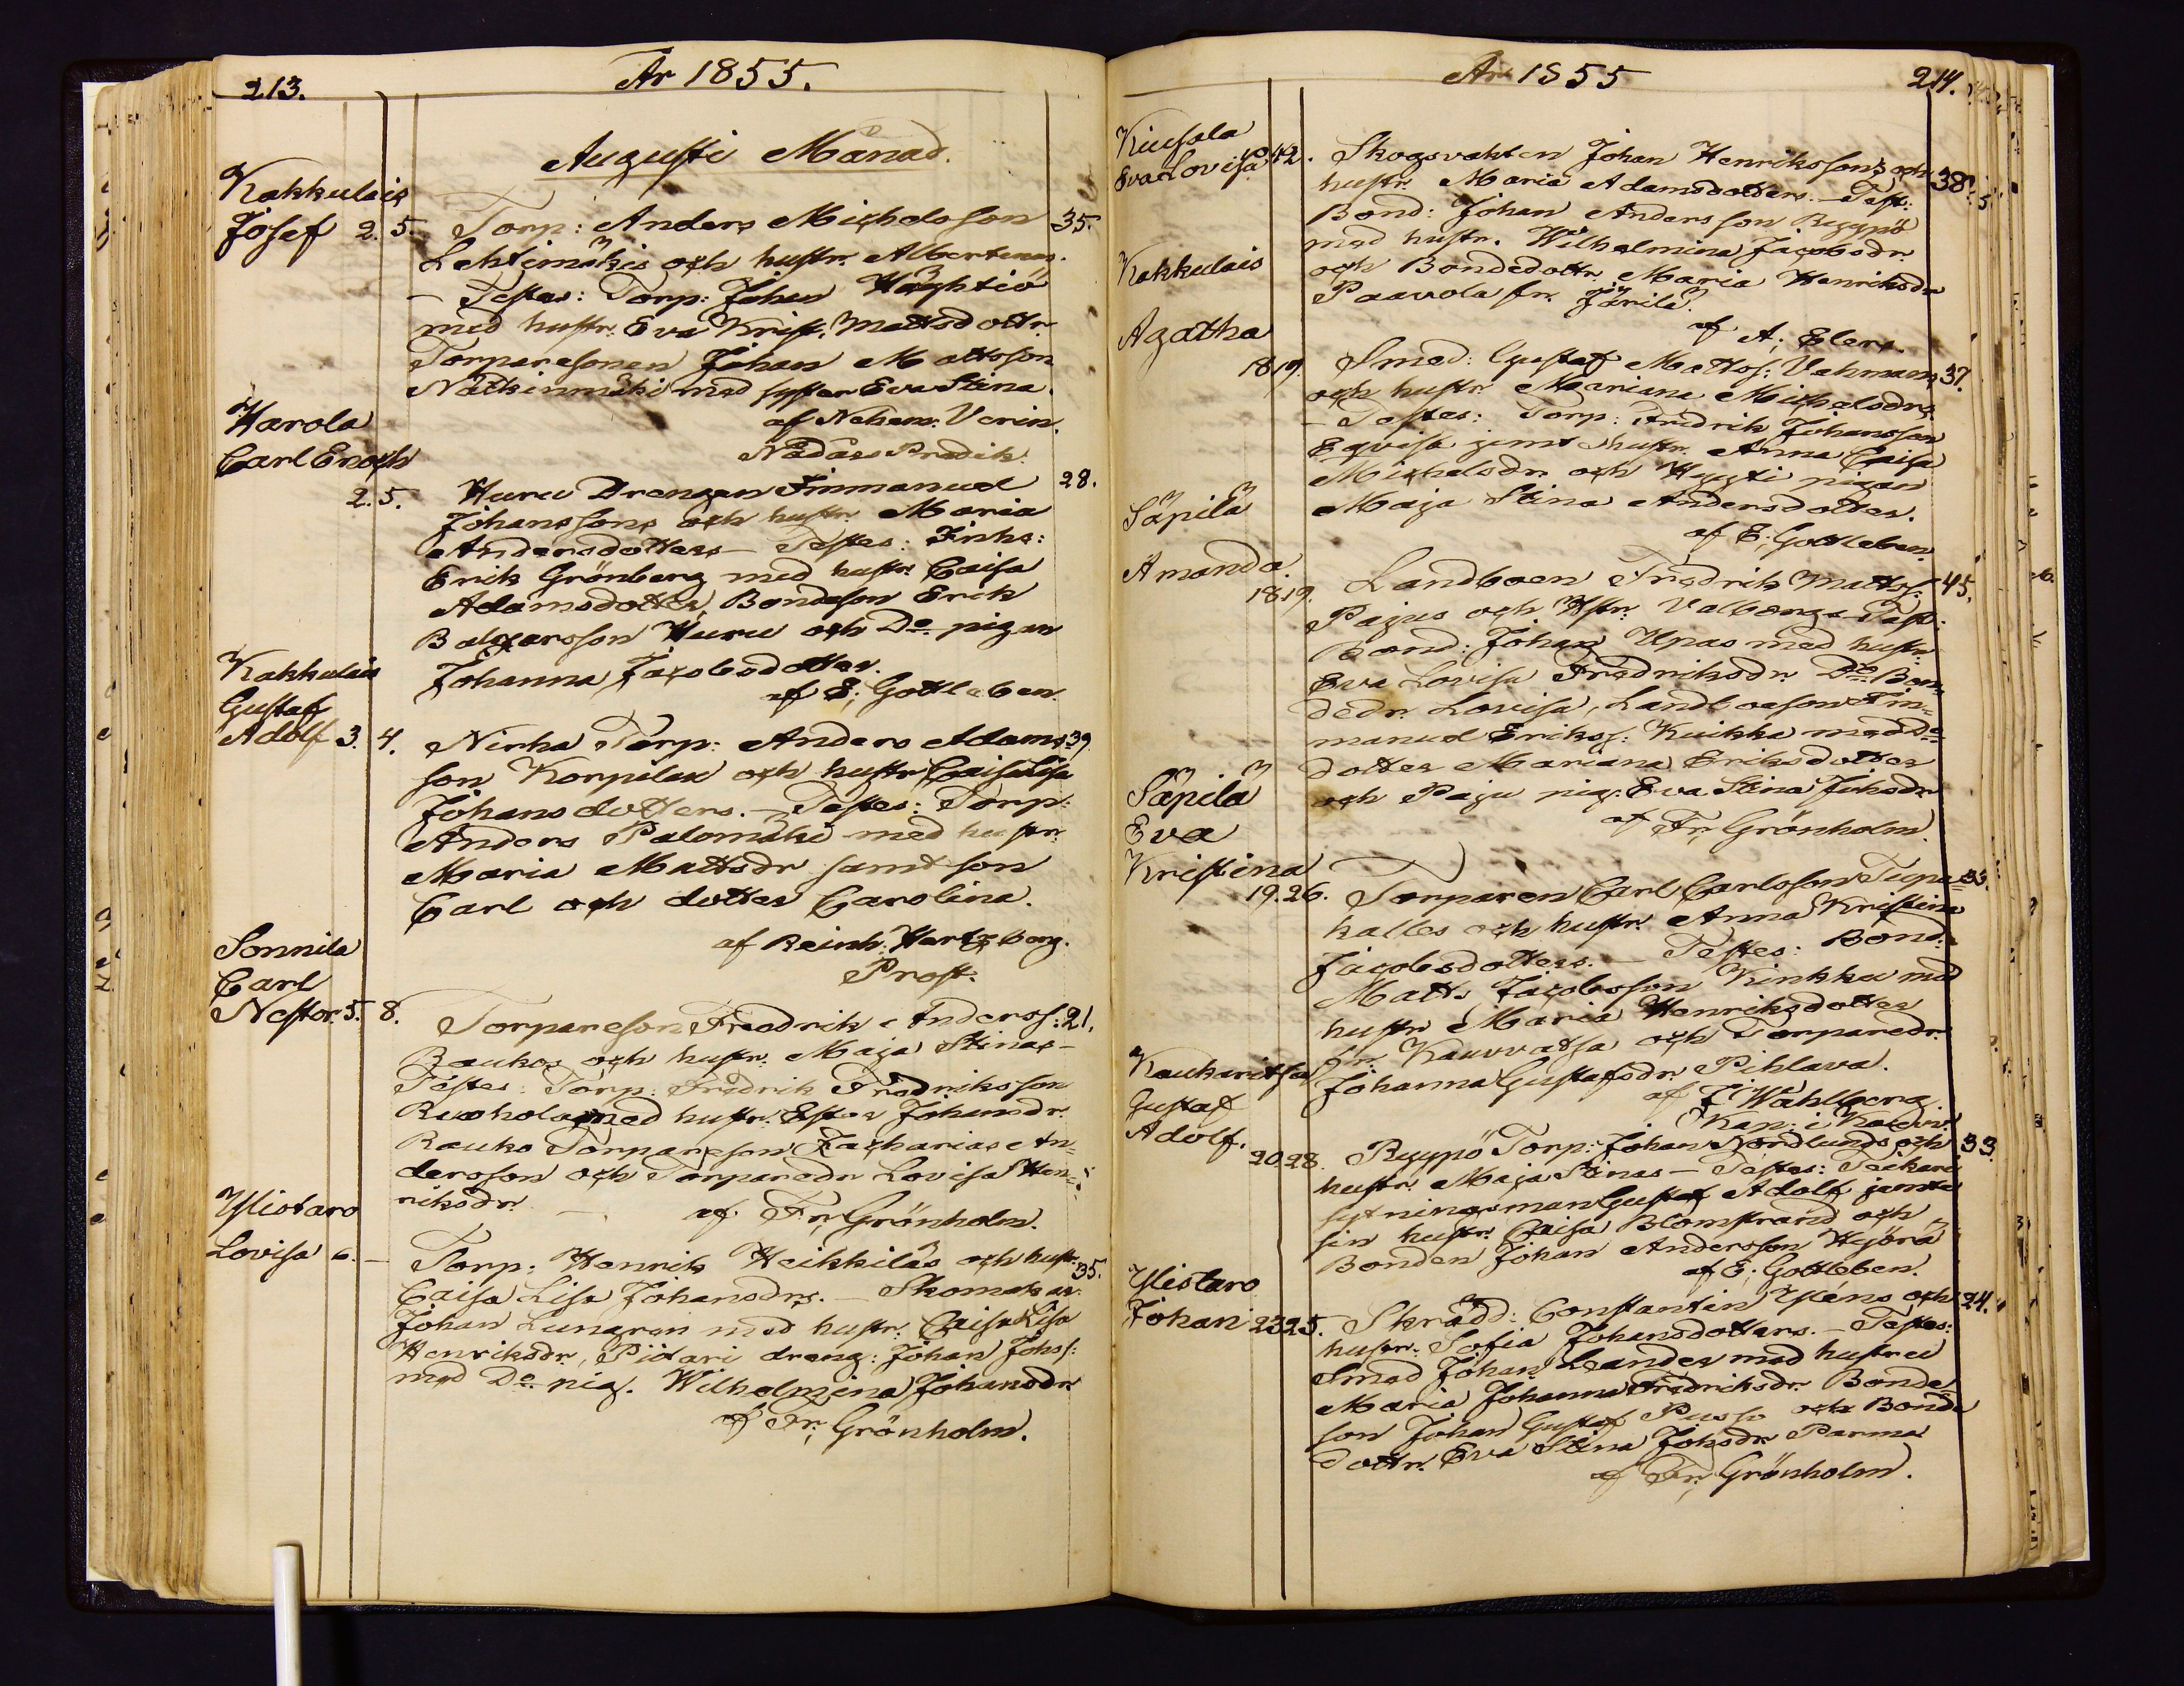 213.
År 1855.
Augusti Månad.
Kakkulais
Josef 2. 5. Torp: Anders Michelsson 35.
Lehtimäkis och hustr. Albertinas.
– Testes: Torp: Johan Häyhtiö
med hustr. Eva Krist. Mattsdottr.
Torparesonen Johan Mattsson
Nätkinmäki med syster Eva Stina.
af Nehem. Verin.
Nådårs Predik.
Harola
Carl Enoch
2. 5. Huru Drengen Immanuel 28.
Johanssons och hustr. Maria
Andersdotters – Testes: Inhs:
Erik Grönberg med hustr. Caisa
Adamsdotter, Bondeson Erik
Balzarsson Huru och Do pigan
Johanna Jacobsdotter.
af E; Gottleben.
Kakkulais
Gustaf
Adolf 3. 4. Nirha Torp: Anders Adams 39.
son Korpilax och hustr Caisa Lisa
Johansdotters. – Testes: Torp:
Anders Palomäki med hustr.
Maria Mattsdr samt son
Carl och dotter Carolina.
af Reinh. Hertzberg.
Prost.
Sonnila
Carl
Nestor. 5. 8. Torpareson Fredrik Anderss: 21.
Raukos och hustr. Maja Stinas –
Testes: Torp: Fredrik Fredriksson
Ruohola med hustr. Ester Johansdr.
Rauko Torpareson Zacharias An=
dersson och Torparedr Lovisa Hen=
riksdr. – af Fr; Grönholm.
Ylistaro
Lovisa 6. – Torp: Henrik Heikkiläs och hustr. 35.
Caisa Lisa Johansdrs. – Skomakar
Johan Lungren med hustr. Caisa Lisa
Henriksdr., Pidari dreng: Johan Johss:
med Do pig. Wilhelmina Johansdr.
af Fr; Grönholm.
År 1855
214.
Kiusala
Eva Lovisa 10, 12. Skogsvakten Johan Henrikssons och 38.
hustr. Maria Adamsdotters. – Test:
Bond: Johan Andersson Ryypö
med hustr. Wilhelmina Jacobsdr.
och Bondedottr Maria Henriksdr
Paavola fr. Järilä.
af A; Elers.
Kakkulais
Agatha
18. 19. Smed: Gustaf Mattss: Vahmans 37.
och hustr. Mariana Michelsdrs
– Testes: Torp: Fredrik Johansson
Eqvist jemt hustr. Anna Caisa
Michelsdr. och Hyyti pigan
Maja Stina Andersdotter.
af E; Gottleben.
Säpilä
Amanda
18. 19. Landboen Fredrik Mattss: 45.
Pajus och Hstr: Valborgs – Test:
Bond: Johan Upas med hustr.
Eva Lovisa Fredriksdr. Do Bon=
dedr. Lovisa, Landboeson Im=
manuel Erikss: Kuikka med Do
dotter Mariana Eriksdotter
och Paju pig: Eva Stina Johsdr
af Fr; Grönholm.
Säpilä
Eva
Kristina
19. 26. Torparen Carl Carlsson Tupa= 33.
kalles och hustr. Anna Kristina
Jacobsdotters. – Testes: Bond:
Matts Jacobsson Kinkku med
hustr Maria Henriksdotter
fr. Kauvatsa och Torparedr.
Johanna Gustafsdr. Pihlava.
af J. Wahlberg
Kap: i
Kaukaritsa
Gustaf
Adolf.
20. 28. Ryypö Torp: Johan Nordlunds och 33.
hustr. Maja Stinas – Testes: Teikari
sytningsman Gustaf Adolf jemte
sin hustr. Caisa Blomstrand och
Bonden Johan Andersson Hyörä
af E; Gottleben.
Ylistaro
Johan 23 25. Skrädd: Constantin Yléns och 24.
hustr. Sofia Johansdotters. – Testes:
Smed Johan Leander med hustru
Maria Johanna Fredriksdr. Bonde=
son Johan Gustaf Pusso och Bonde
dottr. Eva Stina Johsdr. Parma
af Fr; Grönholm.